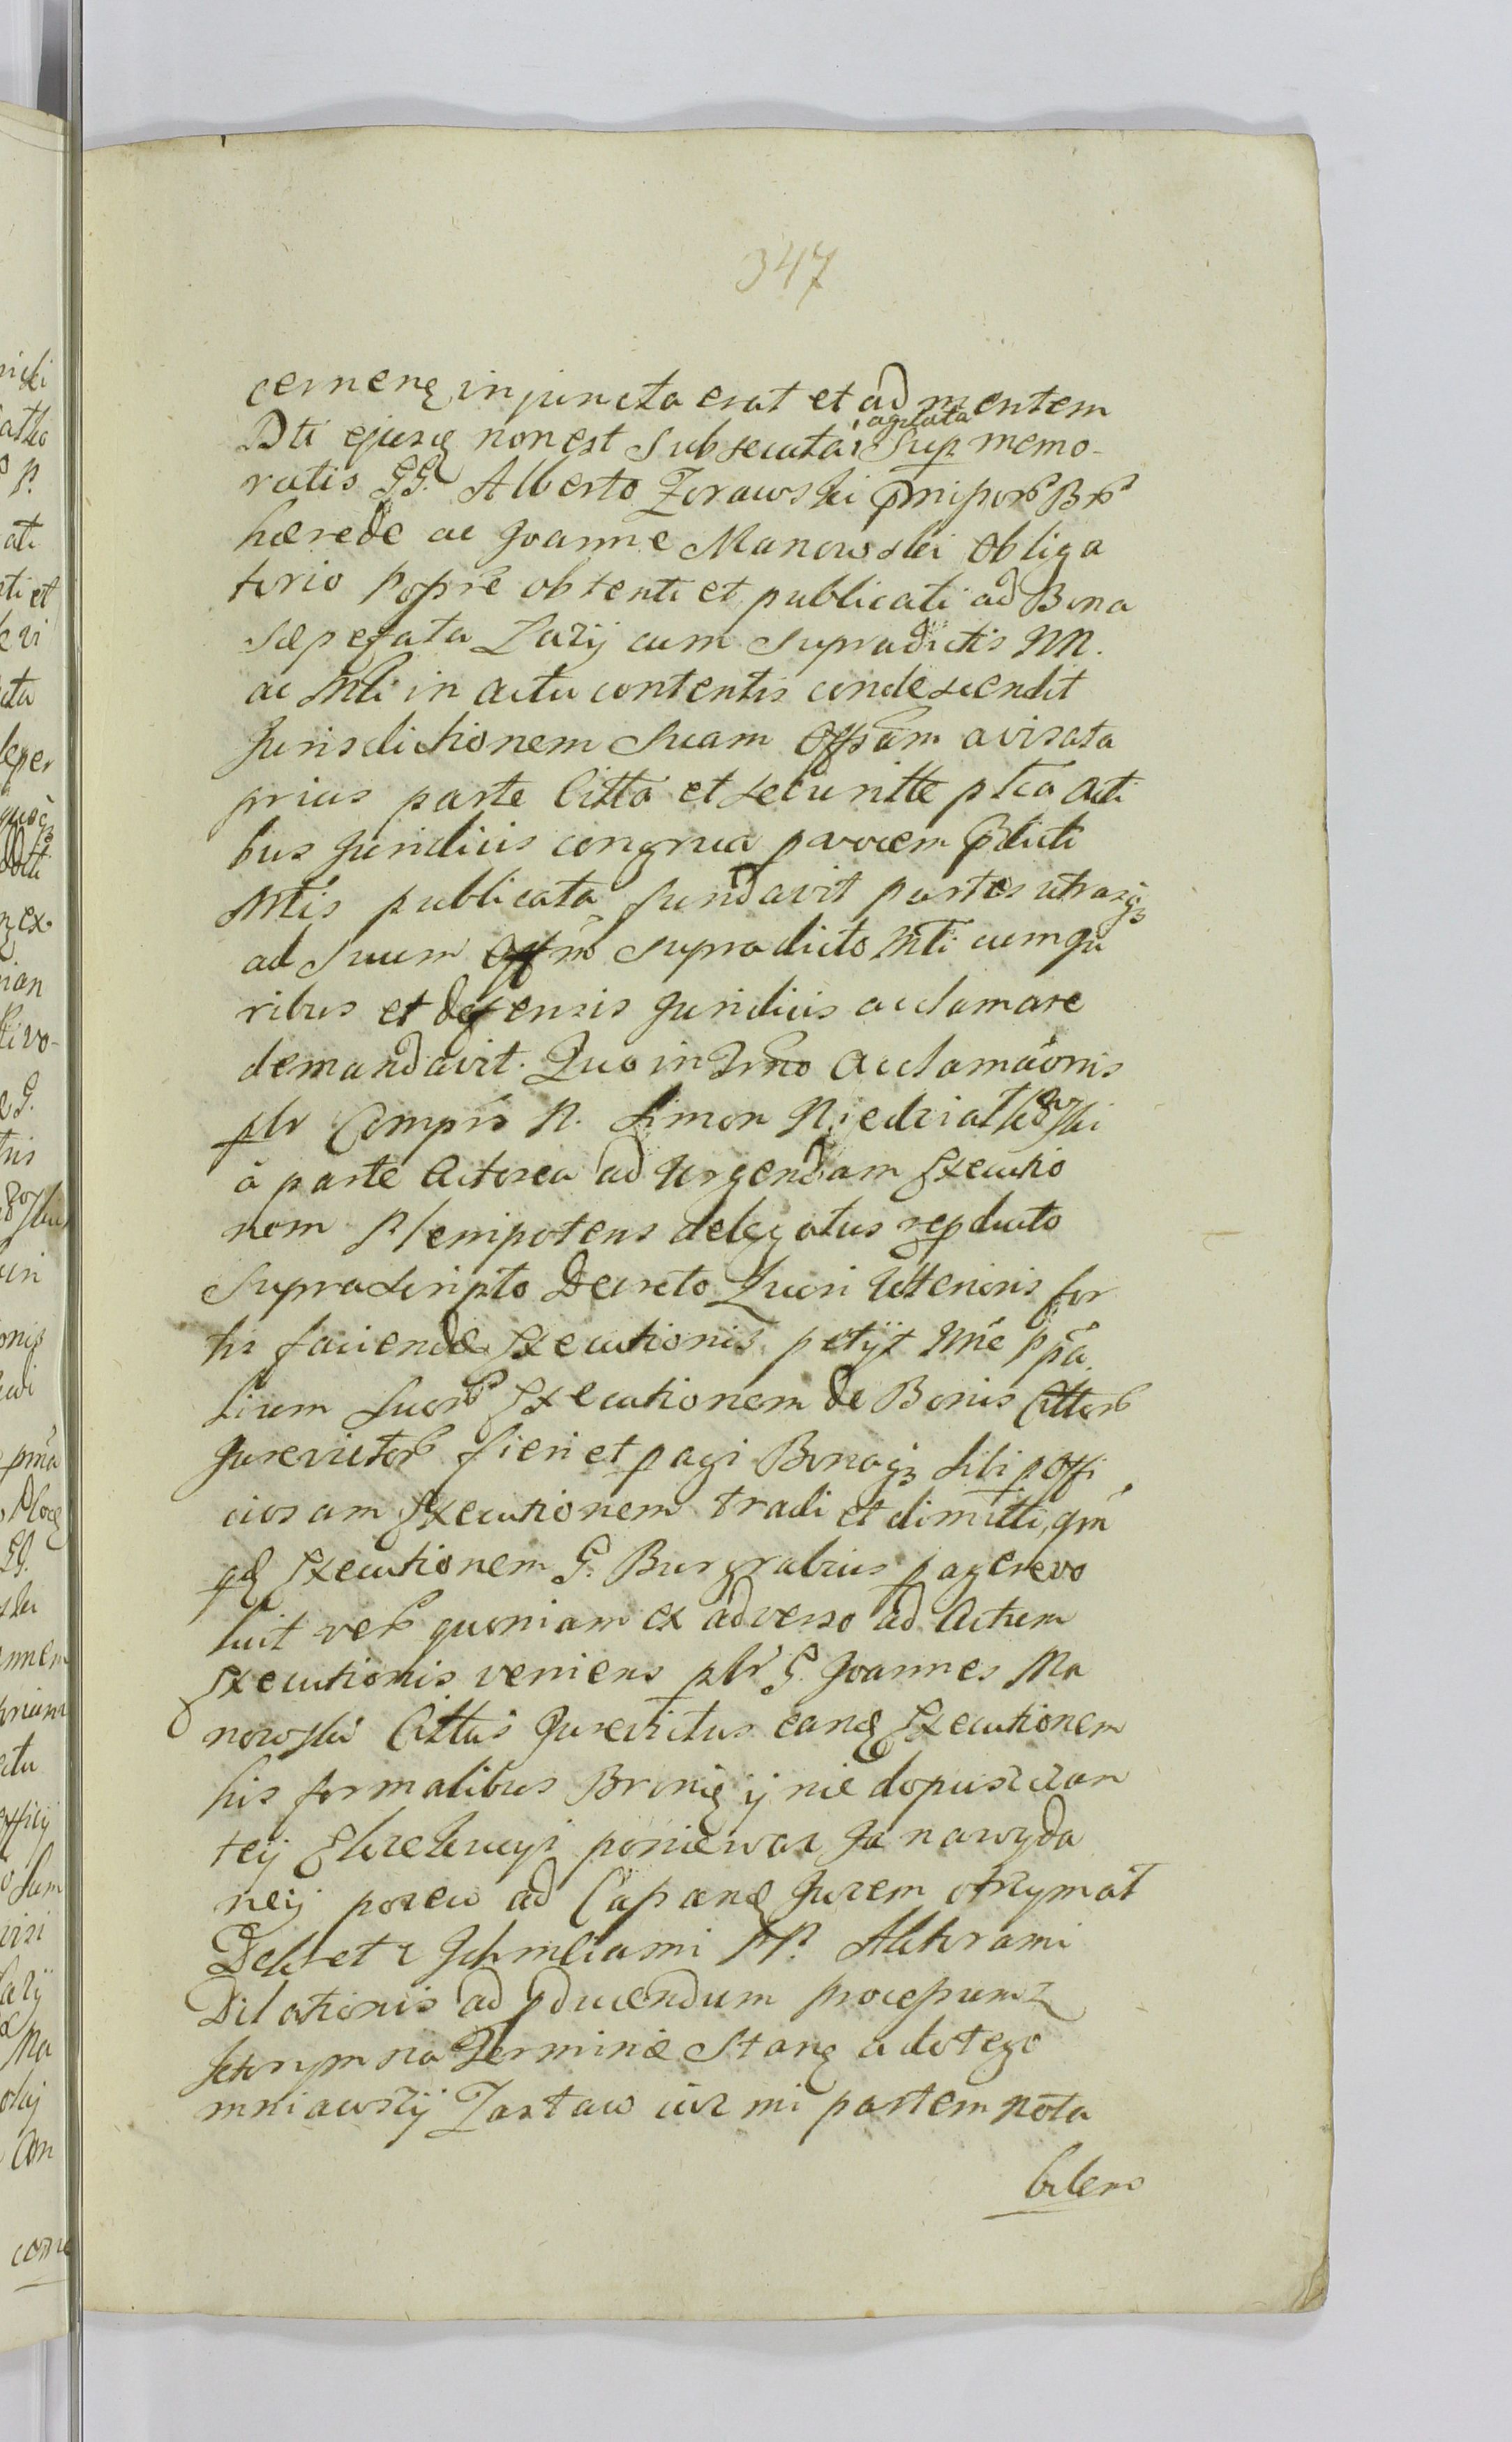 347
cernenȩ injuncta erat et ad mentem
Dti ejusȩ non est subsecuta agitata Sup memo-
ratis GG. Alberto Zorawski
hærede ac Joanne Manowski obliga
torio Possre obtenti et publicati ad Bona
sæpefata Lazij cum supradictis MM.
ac Mli in actu contentis condescendit
Jurisdictionem Suam Offsam avisata
prius parte Citta et securitte ptca acti
bus Juridicis congrua p vocem
Mtis publicata fundavit partes utrasqȝ
ad Suum supradicto Mti cum Ju
ribus et defensis Juridicis acclamare
demandavit. Quo in Trno acclamaonis
plr Compns N. Simon Niedzialkowski
à parte Actorea ad urgendam Executio
nem Plenipotens delegatus repducto
suprascripto Decreto Quori Ulterioris for
tis faciendæ Executionis petijt nne Ppa
lium Suor Executionem de Bonis Cittor
Jurevictor fieri et pagi Bonaqȝ sibi p Offi
ciosam Executionem tradi et dimitti, qm
qd Executionem G. Burgrabius pagere vo
luit ver quoniam ex adverso ad Actum
Executionis veniens plr G. Joannes Ma
nowski Cittus Jurevictus eandȩ Executionem
his formalibus Bronię ij nie dopuszczan
teij Exekucyi poniewaz Ja na wyda
neij pozew ad Capanȩ Jurem otrzymał
Dekret z Ichmciami PP. Aktorami
Dilationis ad pducendum processum z
ktorym na Terminie Stanę a do tego
mniawszij Zastaw iuz mi partem nota
bilem